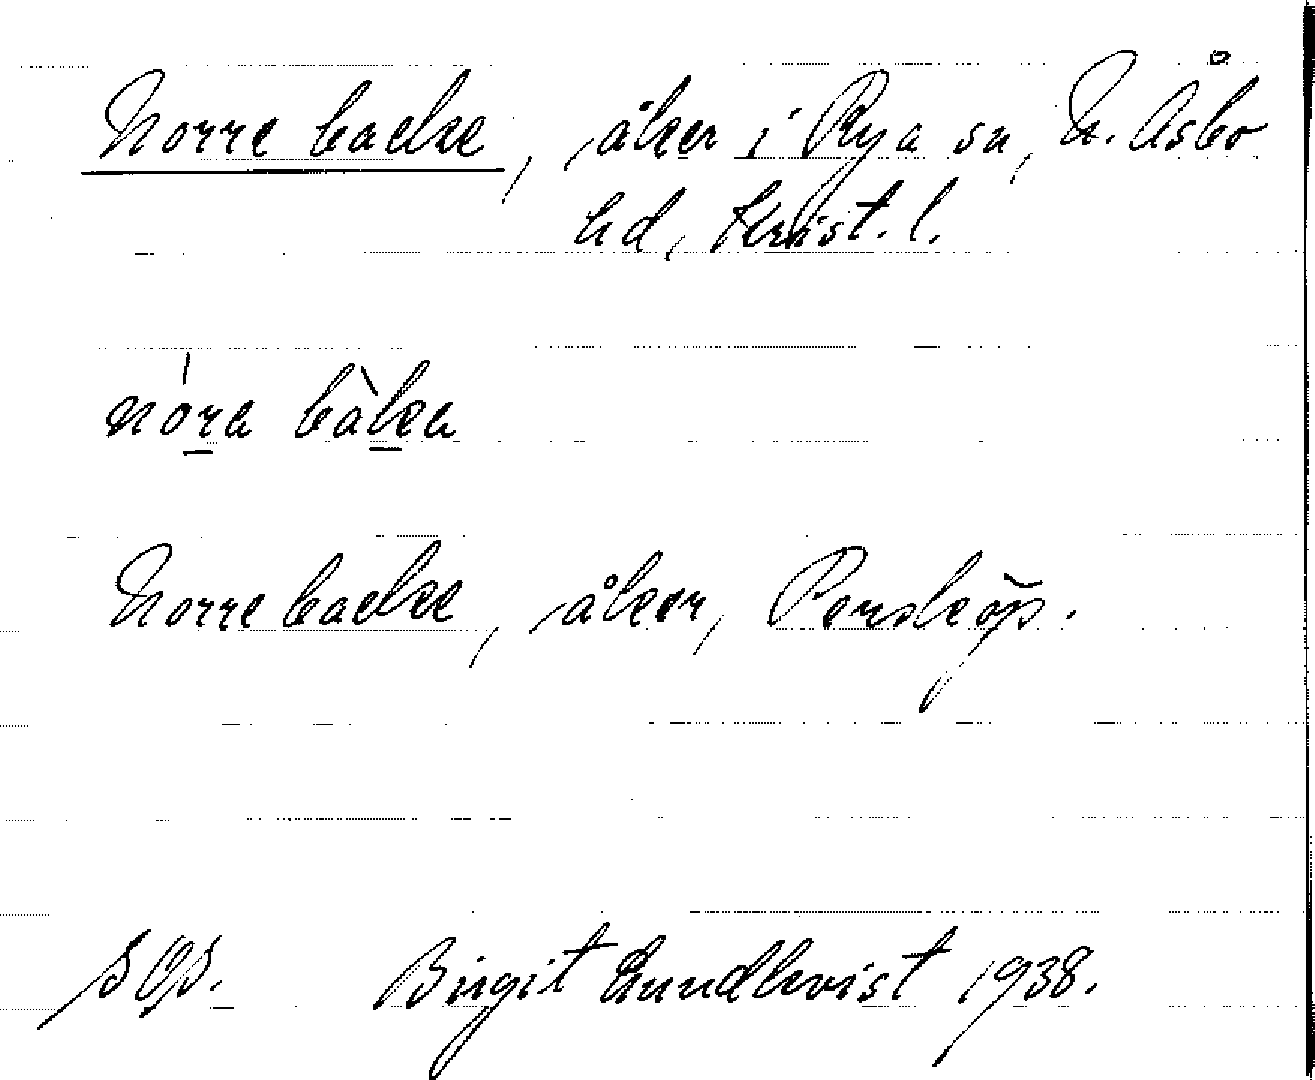 Norre backe, åker i Rya sn, N. Åsbo
hd, Krist. l.
nóra bàka
Norre backe, åker, Perskōp.
Birgit Lundkvist 1938.